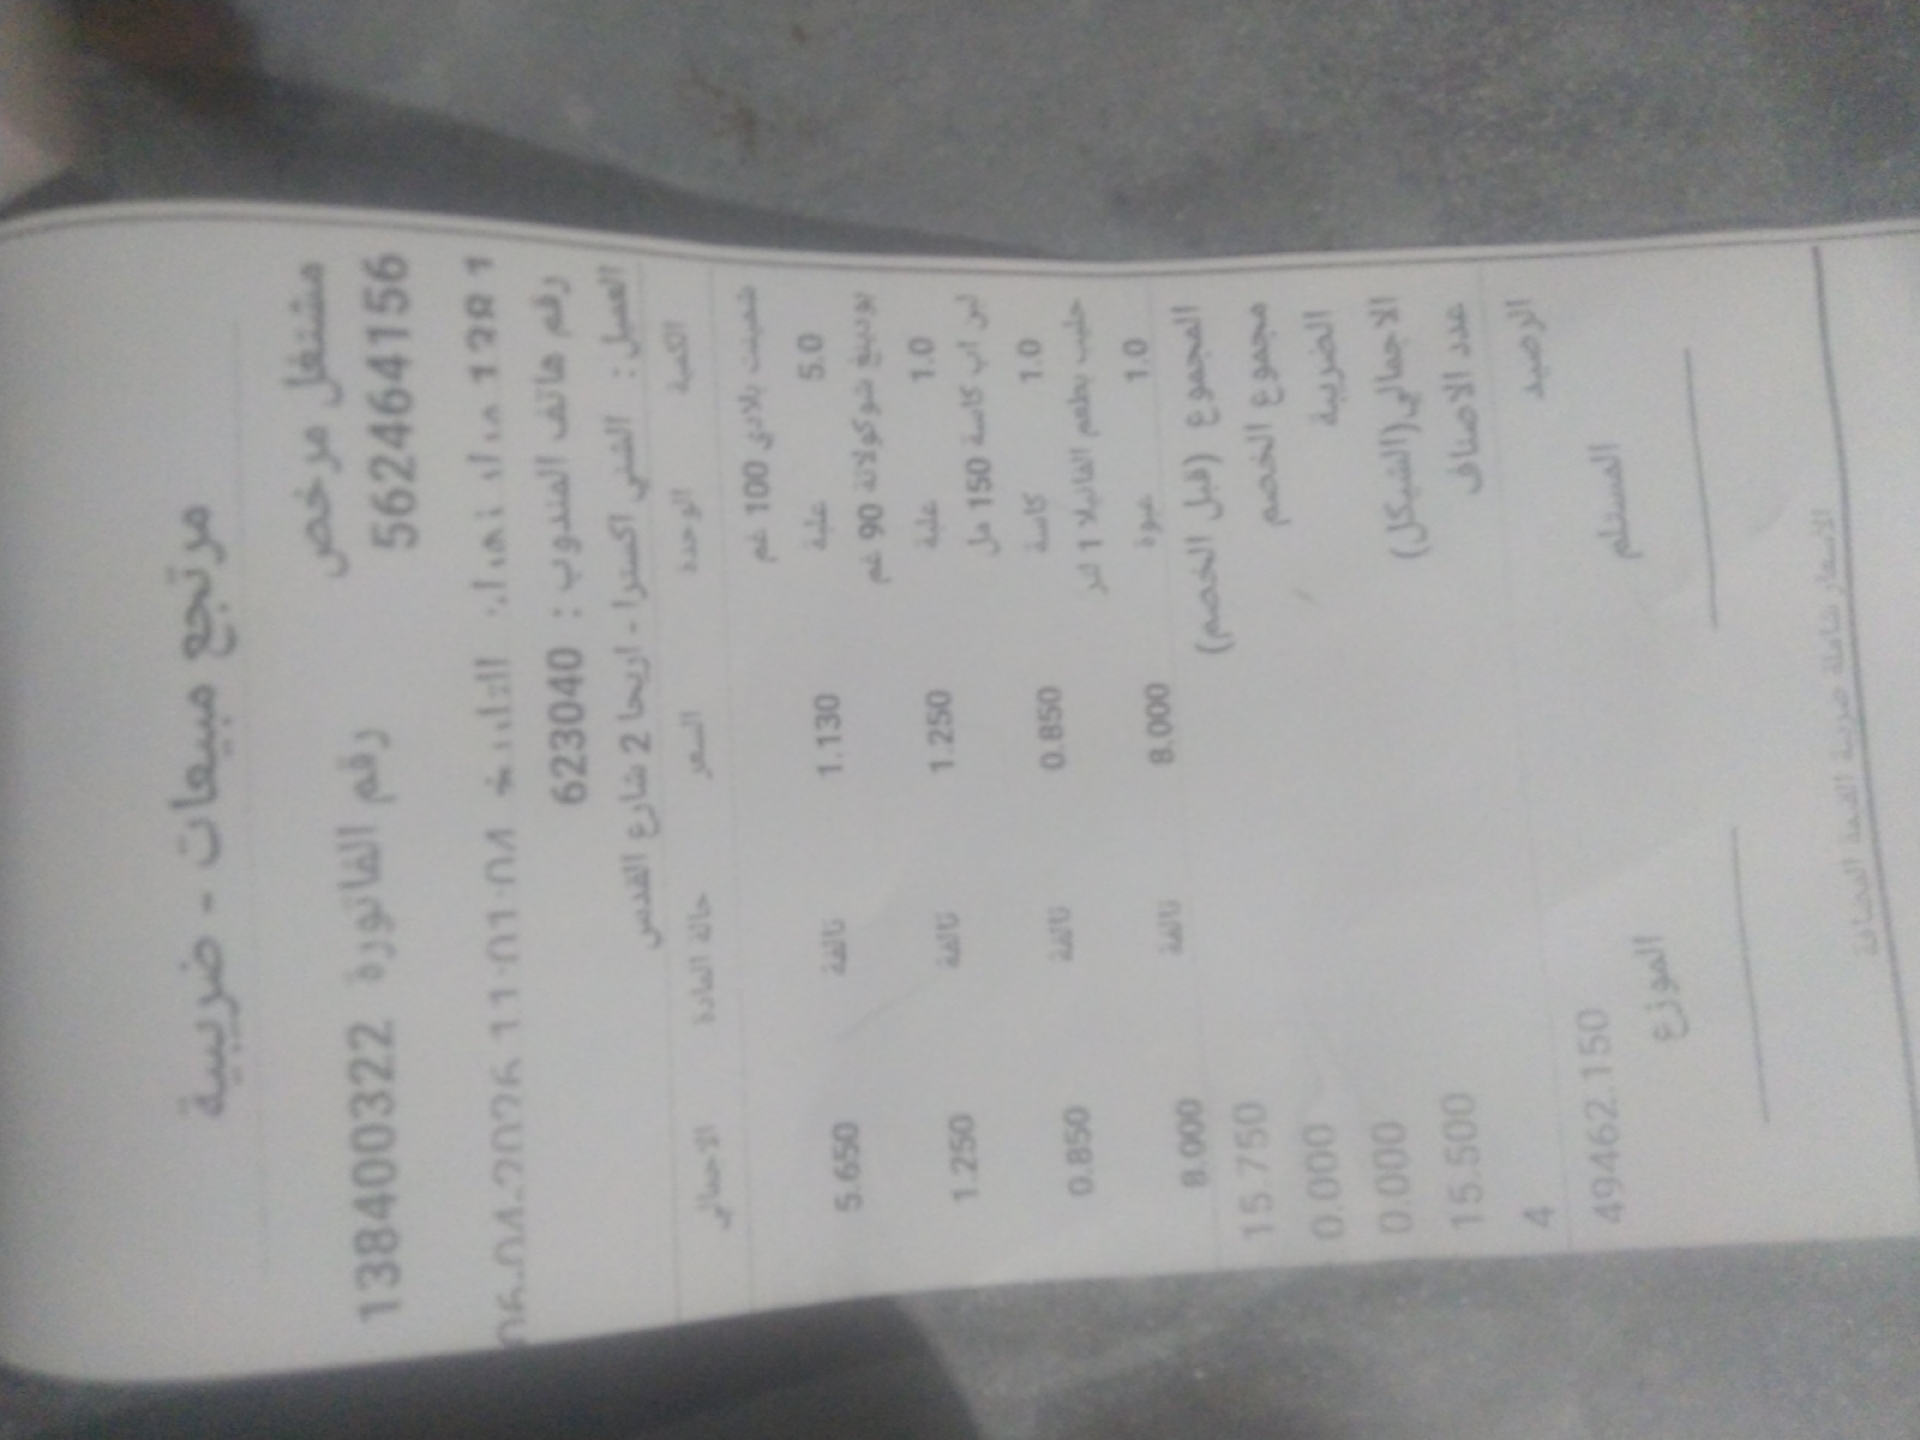 مرتجع مبيعات - ضريبية
مشتغل مرخص رقم الفاتورة 1384000322
562464156
التاريخ
رقم هاتف المندوب : 6230040
العميل : الشني اكسترا - اريحا 2 شارع القدس
الكمية الوحدة السعر حالة المادة الاجمالي
شمينت بلادي 100 غم
5.0 علبة 1.130 تالفة 5.650
بودينغ شوكولاتة 90 غم
1.0 علبة 1.250 تالفة 1.250
لبن اب كاسة 150 مل
1.0 كاسة 0.850 تالفة 0.850
حليب بطعم الفانيلا 1 لتر
1.0 عبوة 8.000 تالفة 8.000
المجموع (قبل الخصم) 15.750
مجموع الخصم 0.000
الضريبة 0.000
الاجمالي(الشيكل) 15.500
عدد الاصناف 4
الرصيد 49462.150
المستلم الموزع
الاسعار شاملة ضريبة القيمة المضافة